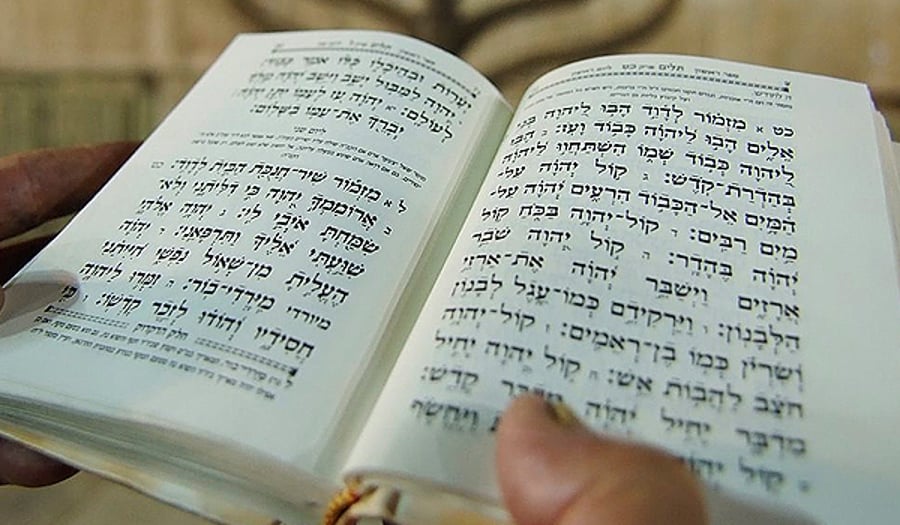 ספר ראשון תלים פרק כט ליום ראשון
כט א מִזְמוֹר לְדָוִד הָבוּ לַיהוָה בְּנֵי
אֵלִים הָבוּ לַיהוָה כָּבוֹד וָעֹז: ב הָבוּ
לַיהוָה כְּבוֹד שְׁמוֹ הִשְׁתַּחֲווּ לַיהוָה
בְּהַדְרַת־קֹדֶשׁ: ג קוֹל יְהוָה עַל־
הַמָּיִם אֵל־הַכָּבוֹד הִרְעִים יְהוָה עַל־
מַיִם רַבִּים: ד קוֹל־יְהוָה בַּכֹּחַ קוֹל
יְהוָה בֶּהָדָר: ה קוֹל יְהוָה שֹׁבֵר
אֲרָזִים וַיְשַׁבֵּר יְהוָה אֶת־אַרְזֵי
הַלְּבָנוֹן: ו וַיַּרְקִידֵם כְּמוֹ־עֵגֶל לְבָנוֹן
וְשִׂרְיֹן כְּמוֹ בֶן־רְאֵמִים: ז קוֹל־יְהוָה
חֹצֵב לַהֲבוֹת אֵשׁ: ח קוֹל יְהוָה יָחִיל
מִדְבָּר יָחִיל יְהוָה מִדְבַּר קָדֵשׁ:
קוֹל יְהוָה וַיֶּחֱשֹׂף
ספר ראשון תלים
יְעָרוֹת וּבְהֵיכָלוֹ כֻּלּוֹ אֹמֵר כָּבוֹד:
יְהוָה לַמַּבּוּל יָשָׁב וַיֵּשֶׁב יְהוָה מֶלֶךְ
לְעוֹלָם: יא יְהוָה עֹז לְעַמּוֹ יִתֵּן יְהוָה
יְבָרֵךְ אֶת־עַמּוֹ בַשָּׁלוֹם:
ליום שני
ל א מִזְמוֹר שִׁיר־חֲנֻכַּת הַבַּיִת לְדָוִד:
ב אֲרוֹמִמְךָ יְהוָה כִּי דִלִּיתָנִי וְלֹא־
שִׂמַּחְתָּ אֹיְבַי לִי: ג יְהוָה אֱלֹהָי
שִׁוַּעְתִּי אֵלֶיךָ וַתִּרְפָּאֵנִי: ד יְהוָה
הֶעֱלִיתָ מִן־שְׁאוֹל נַפְשִׁי חִיִּיתַנִי
מיורדי מִיָּרְדִי־בוֹר: ה זַמְּרוּ לַיהוָה
חֲסִידָיו וְהוֹדוּ לְזֵכֶר קָדְשׁוֹ: ו כִּי